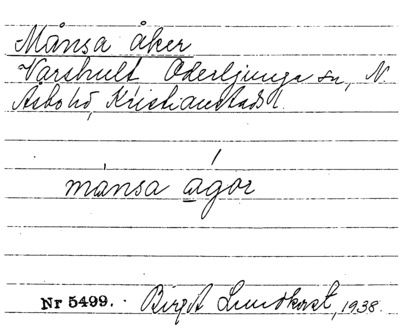 Månsa åker
Varshult Oderljunga sn, N
Åsbo hd, Kristianstads l.
månsa ágor
Nr 5499. Birgit Lundkvist, 1938.